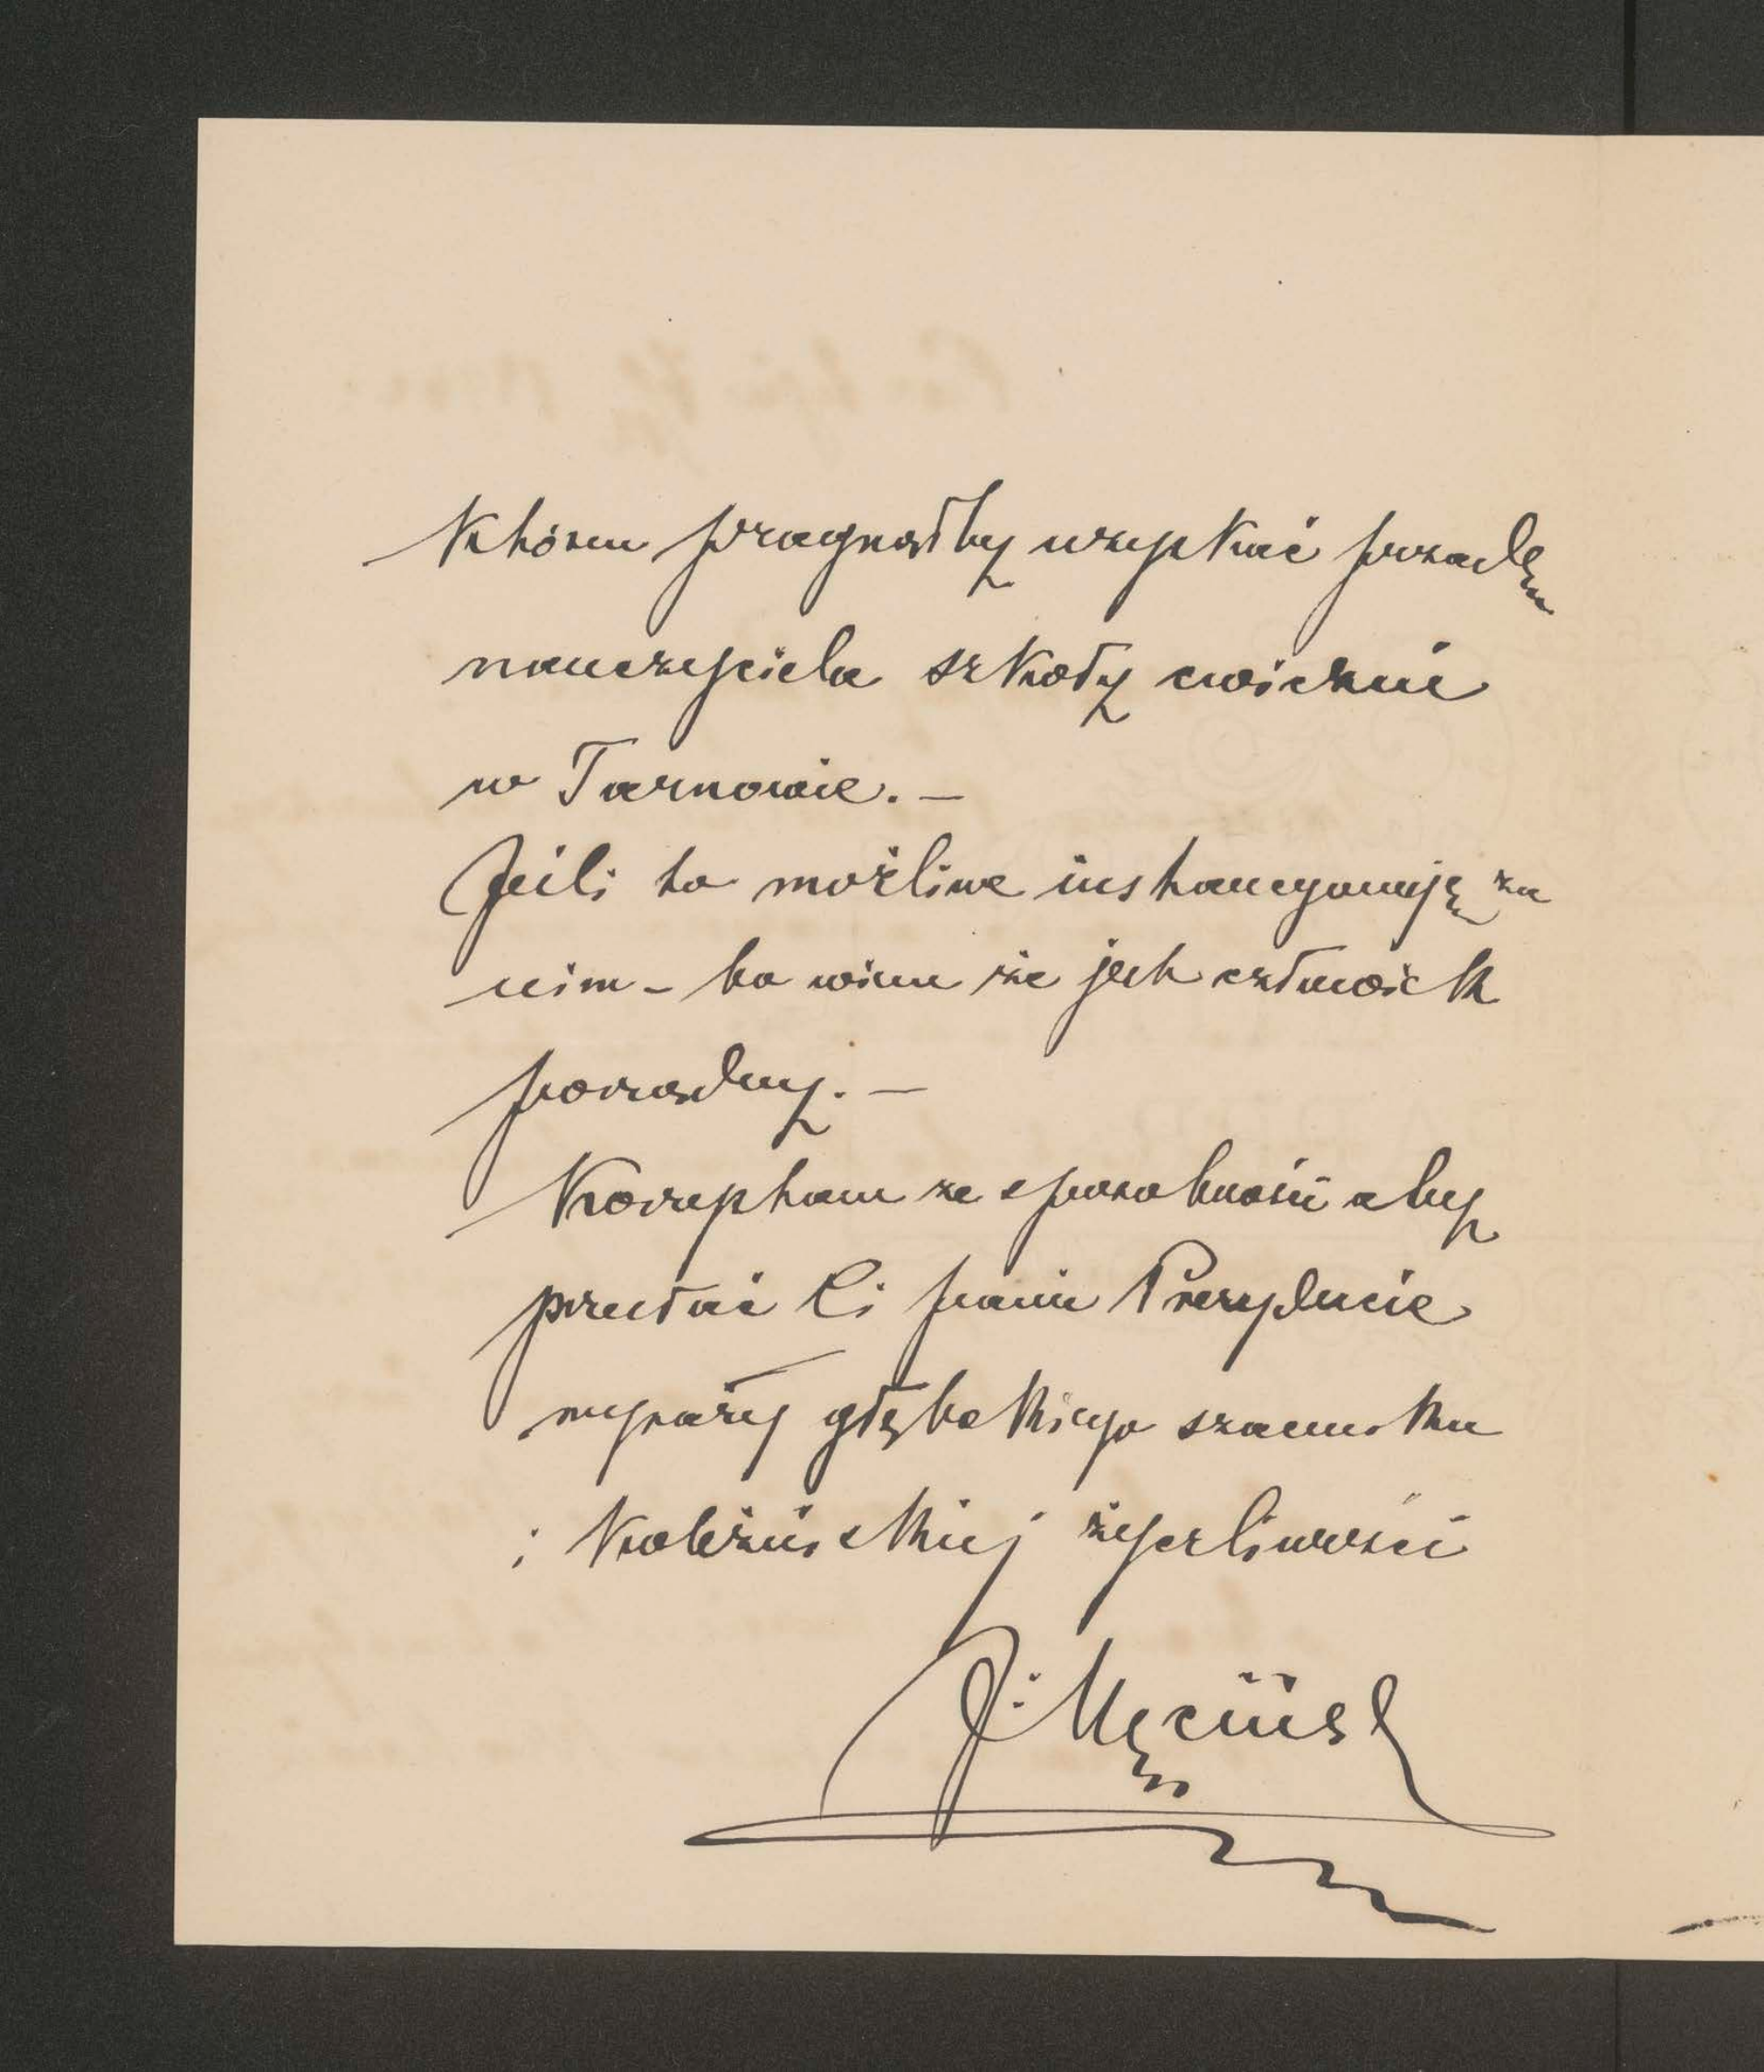 który pragnąłby uzyskać posadę
nauczyciela szkoły ćwiczeń
w Tarnowie. –
Jeśli to możliwe instancyonuję za
nim – bo wiem że jest człowiek
porządny. –
Korzystam ze sposobności aby
przesłać Ci panie Prezydencie
wyrazy głębokiego szacunku
i koleżeńskiej życzliwości
J: Męciński